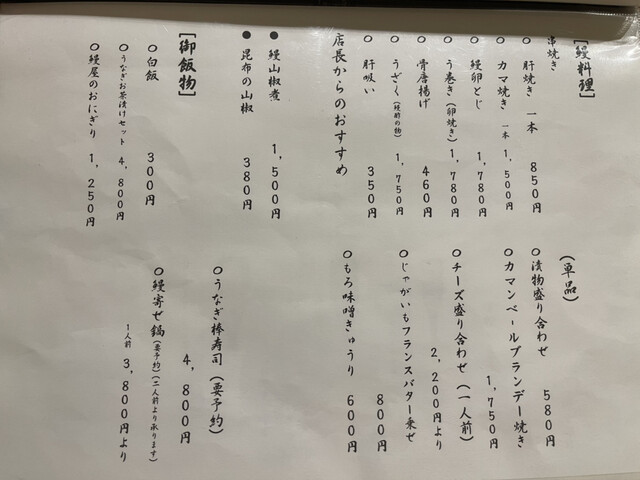 [鰻料理]
串焼き
○肝焼き 一本 850円
○カマ焼き 一本 1,500円
○鰻卵とじ 1,780円
○う巻き(卵焼き) 1,780円
○骨唐揚げ 460円
○うざく(酢の物) 1,750円
○肝吸い 350円
店長からのおすすめ
●鰻山椒煮 1,500円
●昆布の山椒 380円
[御飯物]
○白飯 300円
○うなぎお茶漬けセット 4,800円
○鰻屋のおにぎり 1,250円
(単品)
○漬物盛り合わせ 580円
○カマンベールブランデー焼き 1,750円
○チーズ盛り合わせ(一人前) 2,200円より
○じゃがいもフランスバター乗せ 800円
○もろ味噌きゅうり 600円
○うなぎ棒寿司(要予約) 4,800円
○鰻寄せ鍋(要予約)(二人前より承ります)
1人前 3,800円より